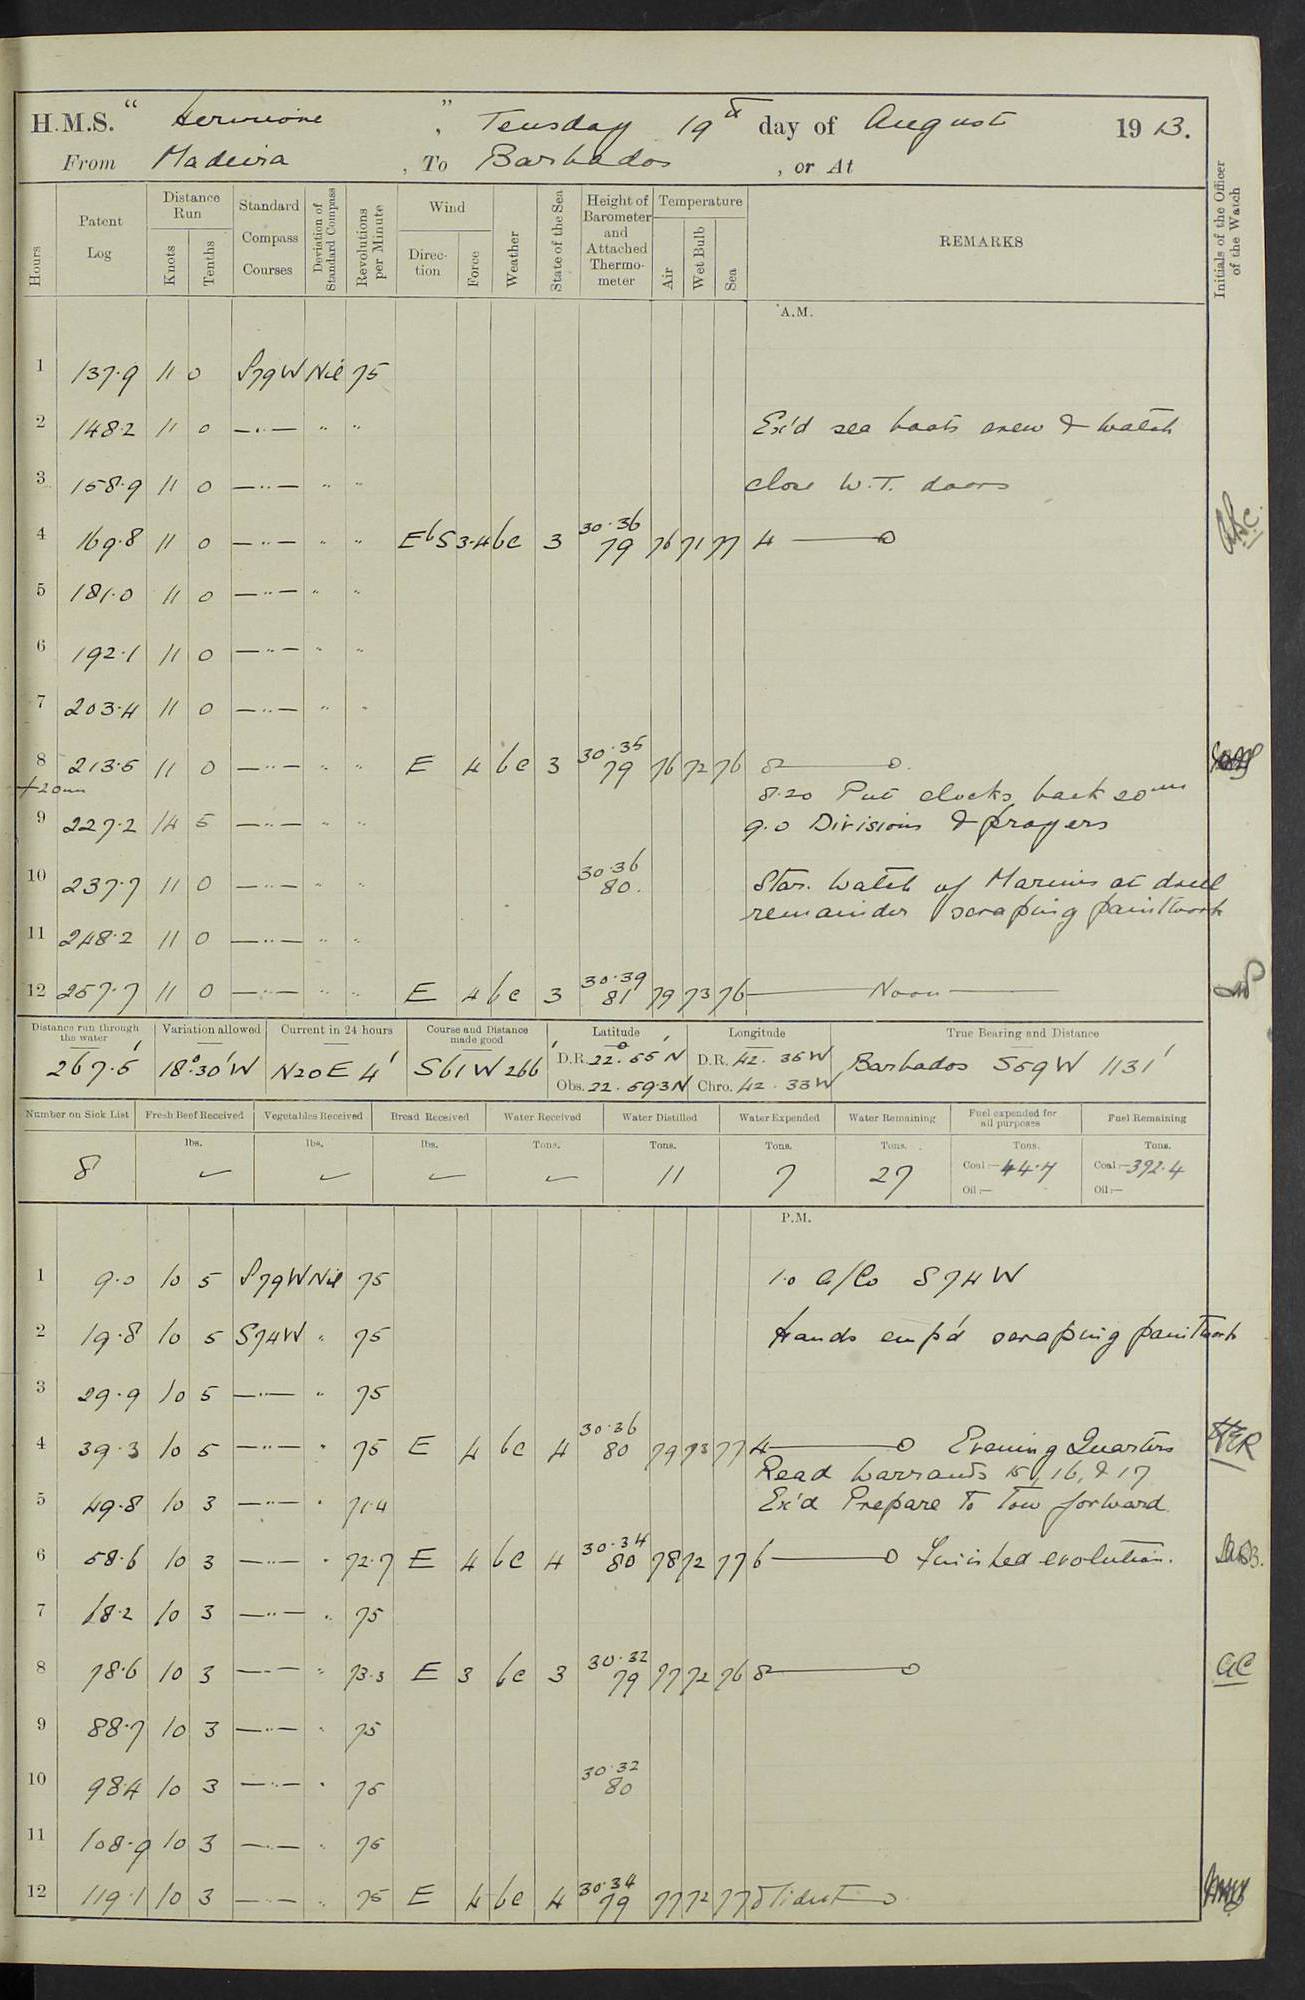 H.M.S. " Hermione " , Teusday 19th day of August 1913.
From Madeira , To Barbados , or At
Hours
Patent Log
Distance Run
Knots
Tenths
Standard Compass Courses
Deviation of Standard Compass
Revolutions per Minute
Wind
Direction
Force
Weather
State of the Sea
Height of Barometer and Attached Thermometer
Temperature
Air
Wet Bulb
Sea
REMARKS
Initials of the Officer of the Watch
A.M.
1 137.9 11 0 S79W Nil 75
2 148.2 11 0 —"— " " Ex'd sea boats crew & watch
3 158.9 11 0 —"— " " close W.T. doors
4 169.8 11 0 —"— " " EbS 3.4 bc 3 30.36 79 76 71 77 4
5 181.0 11 0 —"— " "
6 192.1 11 0 —"— " "
7 203.4 11 0 —"— " "
8 213.5 11 0 —"— " " E 4 bc 3 30.35 79 76 72 76 8
+20m 8.20 Put clocks back 20m
9 227.2 14 5 —"— " " 9.0 Divisions & prayers
10 237.7 11 0 —"— " " 30.36 80. Star. watch of Marines at drill
remainder scraping paintwork
11 248.2 11 0 —"— " "
12 257.7 11 0 —"— " " E 4 bc 3 30.39 81 79 73 76 Noon
Distance run through the water 267.5'
Variation allowed 18°.30'W
Current in 24 hours N20E 4'
Course and Distance made good S61W 266'
Latitude D.R. 22°.55'N Obs. 22.59.3N
Longitude D.R. 42.36W Chro. 42.33W
True Bearing and Distance Barbados S59W 1131'
Number on Sick List 8
Fresh Beef Received lbs. ✓
Vegetables Received lbs. ✓
Bread Received lbs. ✓
Water Received Tons. ✓
Water Distilled Tons. 11
Water Expended Tons. 7
Water Remaining Tons. 27
Fuel expended for all purposes Tons. Coal:— 44.7 Oil:—
Fuel Remaining Tons. Coal:— 392.4 Oil:—
P.M.
1 9.0 10 5 S79W Nil 75 1.0 a/Co S74W
2 19.8 10 5 S74W " 75 Hands emp'd scraping paintwork
3 29.9 10 5 —"— " 75
4 39.3 10 5 —"— " 75 E 4 bc 4 30.36 80 79 73 77 4 Evening Quarters
Read warrants 15, 16, & 17
5 49.8 10 3 —"— " 71.4 Ex'd Prepare to tow forward
6 58.6 10 3 —"— " 72.7 E 4 bc 4 30.34 80 78 72 77 6 Finished evolution.
7 68.2 10 3 —"— " 75
8 78.6 10 3 —"— " 73.3 E 3 bc 3 30.32 79 77 72 76 8 GC
9 88.7 10 3 —"— " 75
10 98.4 10 3 —"— " 75 30.32 80
11 108.9 10 3 —"— " 75
12 119.1 10 3 —"— " 75 E 4 bc 4 30.34 79 77 72 77